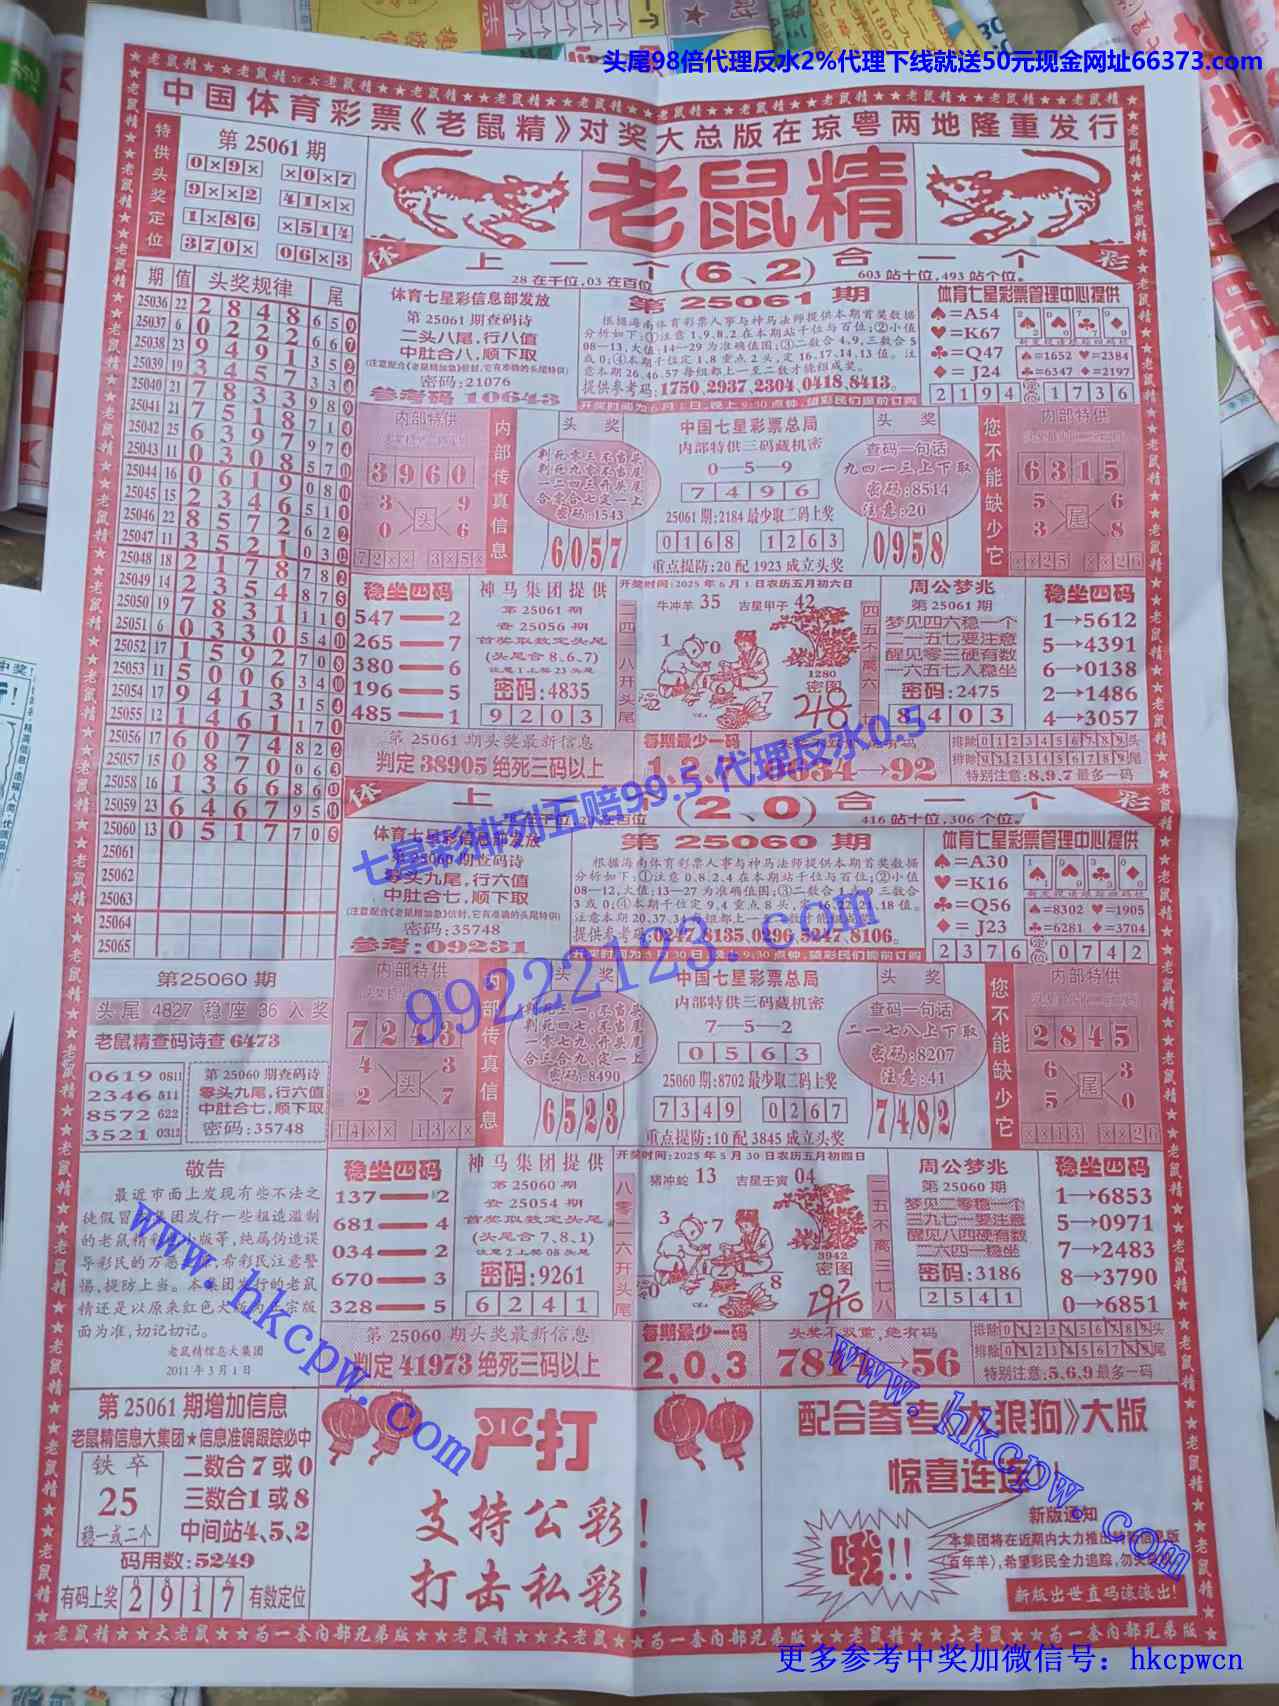 头尾98倍代理反水2%代理下线就送50元现金网址66373.com
中国体育彩票《老鼠精》对奖大总版在琼粤两地隆重发行
特供头奖定位
第25061期
0×9× ×0×7
9××2 41××
1×86 ×514
370× 06×3
老鼠精
体 上一个(6、2)合一个 彩
28在千位,03在百位 603站十位,493站个位。
期 值 头奖规律 尾
25036 22 2 8 4 8 6 5 9
25037 6 0 2 2 2 6 6 7
25038 23 9 4 9 1 3 5 2
25039 19 3 4 5 7 3 3 4
25040 21 7 8 3 3 9 8 9
25041 21 7 5 1 8 7 1 4
25042 25 6 3 9 7 9 7 4
25043 11 0 3 0 8 5 7 10
25044 16 0 6 1 9 0 8 11
25045 15 2 3 4 6 5 1 1
25046 22 8 5 7 2 6 2 2
25047 11 3 5 2 1 0 3 12
25048 18 2 1 7 8 7 8 2
25049 14 2 3 5 4 8 7 5
25050 19 7 8 3 1 1 1 4
25051 6 0 3 3 0 5 4 11
25052 17 1 5 9 2 7 0 8
25053 11 5 0 0 6 3 4 10
25054 17 9 4 1 3 1 5 4
25055 12 1 4 6 1 1 7 1
25056 17 6 0 7 4 8 2 2
25057 15 0 8 7 0 0 6 3
25058 16 1 3 6 6 8 6
25059 23 6 4 6 7 9 5
25060 13 0 5 1 7 7 0 5
25061
25062
25063
25064
25065
体育七星彩信息部发放
第25061期查码诗
二头八尾,行八值
中肚合八,顺下取
(注意配合《老鼠精加急》信封,它有准确的头尾特供)
密码:21076
参考码 10643
第25061期
根据海南体育彩票人事与神马法师提供本期首奖数据
分析如下:①注意1,9,8,2在本期站千位与百位;②小值
08—13,大值:14—29为准确值围;③二数合4,9,三数合5
或0;④本期千位定1,8重点2头,定16,17,14,13值。注
意本期26,46,57每组都上一至二数才能组成奖。
提供参考码:1750,2937,2304,0418,8413。
开奖时间为6月1日,晚上9:30点钟,望彩民们提前订购
体育七星彩票管理中心提供
♠=A54
♥=K67
♣=Q47
♦=J24
♠=1652 ♥=2384
♣=6347 ♦=2197
2194 1736
内部特供
3960
3 9
头
0 6
72×× 3×5×
内部传真信息
头奖
判死零三不当头
判死九七不当尾
一二四三开头尾
合零合七定一上
密码:1543
6057
中国七星彩票总局
内部特供三码藏机密
0—5—9
7496
25061期:2184最少取二码上奖
0168 1263
重点提防:20配1923成立头奖
头奖
查码一句话
九四一三上下取
密码:8514
注意:20
0958
您不能缺少它
内部特供
6315
5 6
尾
3 8
××25 ××26
稳坐四码
547——2
265——7
380——6
196——5
485——1
神马集团提供
第25061期
查25056期
首奖取数定头尾
(头尾合8,6,7)
注意1上奖23头尾
密码:4835
9203
开奖时间:2025年6月1日农历五月初六日
二四一八开头尾
牛冲羊 35 吉星甲子 42
1280
密图
四五不离一六
周公梦兆
第25061期
梦见四六稳一个
二一五七要注意
醒见零三硬有数
一六五七入稳坐
密码:2475
8403
稳坐四码
1→5612
5→4391
6→0138
2→1486
4→3057
第25061期头奖最新信息
判定38905绝死三码以上
每期最少一码
8634→92
排除 0 1 2 3 4 5 6 7 8 9 头
排除 0 1 2 3 4 5 6 7 8 9 尾
特别注意:8,9,7最多一码
七星彩排列五赔99.5代理反水0.5
体 上一个(2、0)合一个 彩
416站十位,306个位。
体育七星彩信息部发放
第25060期查码诗
零头九尾,行六值
中肚合七,顺下取
(注意配合《老鼠精加急》信封,它有准确的头尾特供)
密码:35748
参考:09231
第25060期
根据海南体育彩票人事与神马法师提供本期首奖数据
分析如下:①注意0,8,2,4在本期站千位与百位;②小值
08—12,大值:13—27为准确值围;③二数合4,9三数合
3或0;④本期千位定9,4重点8头,定16,22,21,18值。
注意本期20,37,34每组都上一至二数才能组成奖。
提供参考码:0247,8135,0296,5247,8106。
开奖时间为5月30日,晚上9:30点钟,望彩民们提前订购
体育七星彩票管理中心提供
♠=A30
♥=K16
♣=Q56
♦=J23
♠=8302 ♥=1905
♣=6281 ♦=3704
2376 0742
99222123.com
内部特供
7243
4 3
头
2 7
14×× 13××
内部传真信息
头奖
密码:8490
6523
中国七星彩票总局
内部特供三码藏机密
7—5—2
0563
25060期:8702最少取二码上奖
7349 0267
重点提防:10配3845成立头奖
头奖
查码一句话
二一七八上下取
密码:8207
注意:41
7482
您不能缺少它
内部特供
2845
6 3
尾
5 0
××13 ××26
第25060期
头尾4827稳座36入奖
老鼠精查码诗查6473
0619 0811
2346 511
8572 622
3521 0312
第25060期查码诗
零头九尾,行六值
中肚合七,顺下取
密码:35748
稳坐四码
137——2
681——4
034——2
670——3
328——5
神马集团提供
第25060期
查25054期
首奖取数定头尾
(头尾合7,8,1)
注意2上奖08头尾
密码:9261
6241
开奖时间:2025年5月30日农历五月初四日
八零二六开头尾
猪冲蛇 13 吉星壬寅 04
3942
密图
二五不离三七八
周公梦兆
第25060期
梦见二零稳一个
三九七一要注意
醒见八四硬有数
二六四一稳坐
密码:3186
2541
稳坐四码
1→6853
5→0971
7→2483
8→3790
0→6851
第25060期头奖最新信息
判定41973绝死三码以上
每期最少一码
2,0,3
头奖不双重,绝有码
→56
排除 0 1 2 3 4 5 6 7 8 9 头
排除 0 1 2 3 4 5 6 7 8 9 尾
特别注意:5,6,9最多一码
敬告
最近市面上发现有些不法之
徒假冒本集团发行一些粗造滥制
的老鼠精彩色小版等,纯属伪造误
导彩民的万恶之源,希彩民注意警
惕,提防上当。本集团发行的老鼠
精还是以原来红色大版为正宗版
面为准,切记切记。
老鼠精信息大集团
2011年3月1日
www.hkcpw.com
www.hkcpw.com
第25061期增加信息
老鼠精信息大集团★信息准确跟踪必中
铁卒
25
稳一或二个
二数合7或0
三数合1或8
中间站4、5、2
码用数:5249
有码上奖 2917 有数定位
严打
支持公彩!
打击私彩!
配合参考《大狼狗》大版
惊喜连连!
哦!!
新版通知
本集团将在近期内大力推出特新信息版
(百年羊),希望彩民全力追踪,勿失良机
新版出世直码滚滚出!
★老鼠精★★大老鼠★★为一套内部兄弟版★★老鼠精★★大老鼠★★为一套内部兄弟版★
更多参考中奖加微信号: hkcpwcn